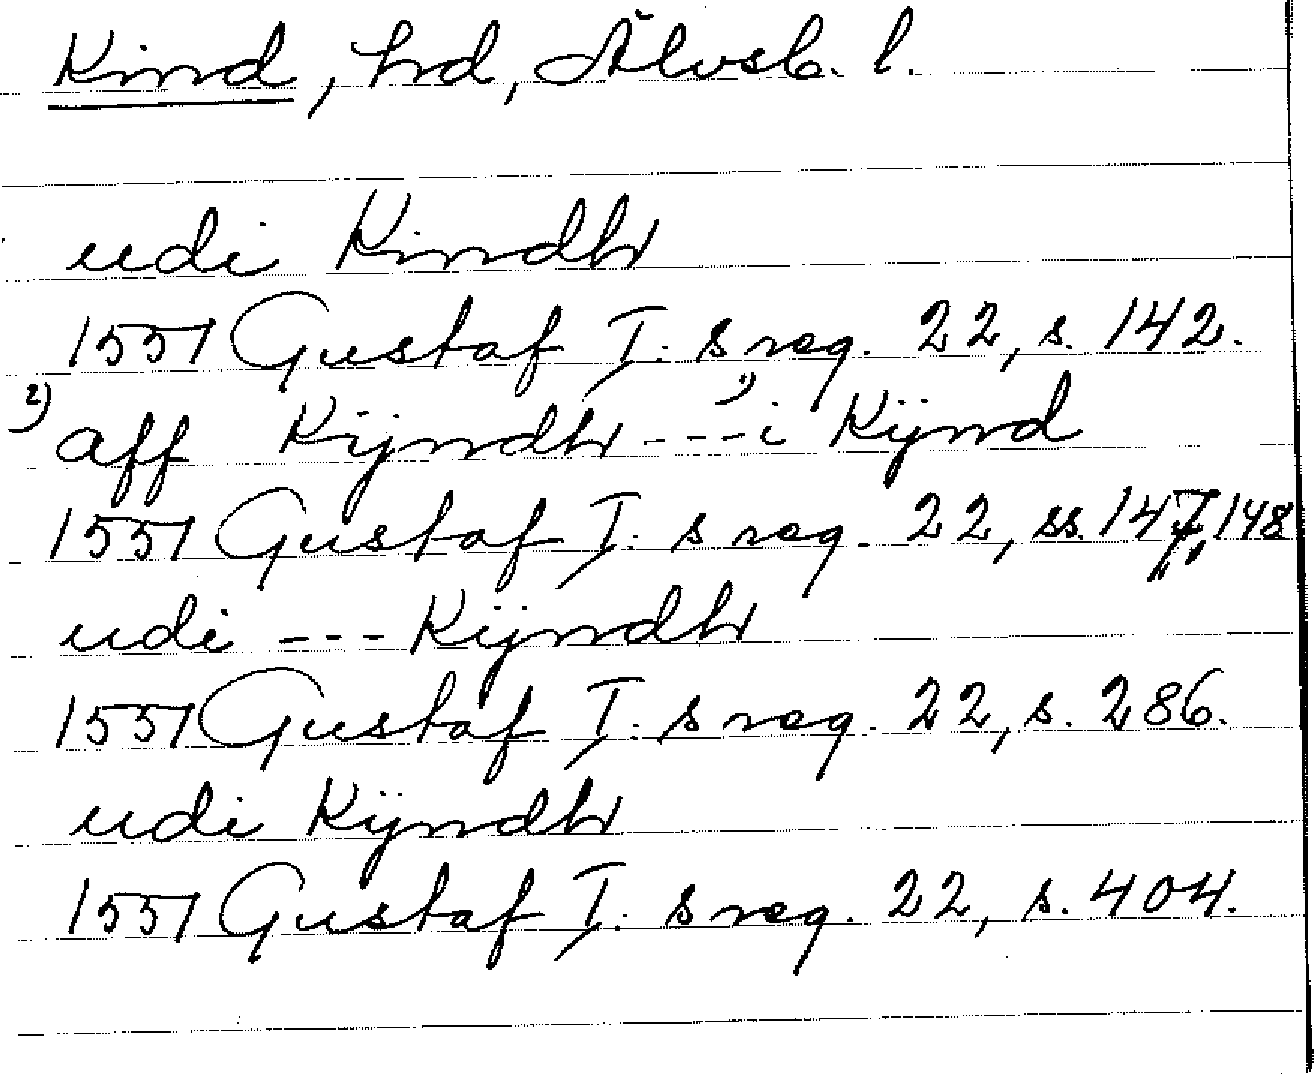 Kind, hd, Älvsb. l.
udi Kindh
1551 Gustaf I: s reg. 22, s. 142.
2) aff Kÿndh --- 1) i Kÿnd
1551 Gustaf I: s reg. 22, ss. 147, 148
udi --- Kÿndh
1551 Gustaf I: s reg. 22, s. 286.
udi Kÿndh
1551 Gustaf I: s reg. 22, s. 404.